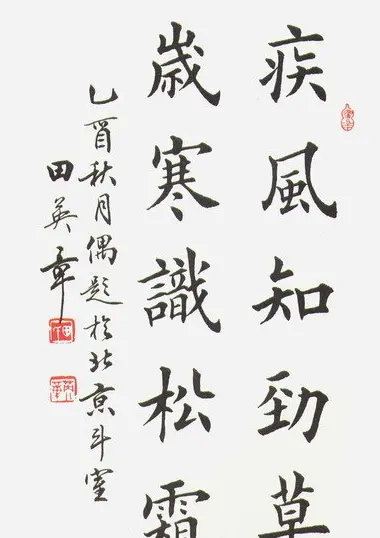 疾風知勁草
歲寒識松霜
乙酉秋月偶題於北京斗室
田英章